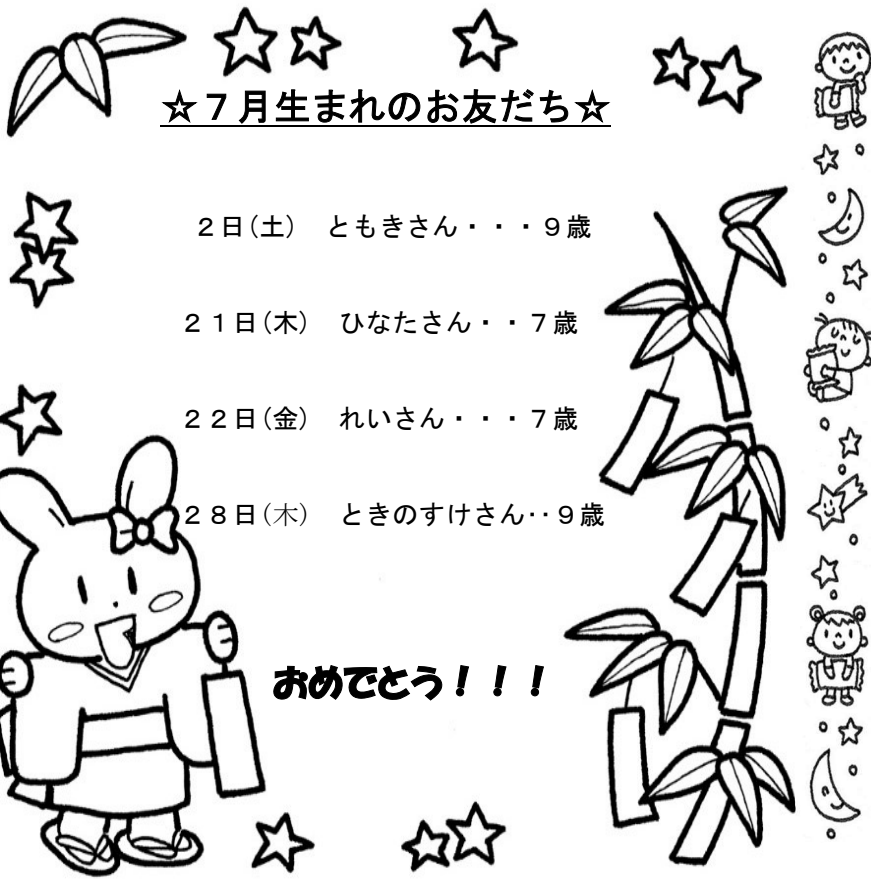 ☆７月生まれのお友だち☆
２日(土)　ともきさん・・・９歳
２１日(木)　ひなたさん・・７歳
２２日(金)　れいさん・・・７歳
２８日(木)　ときのすけさん‥９歳
おめでとう！！！